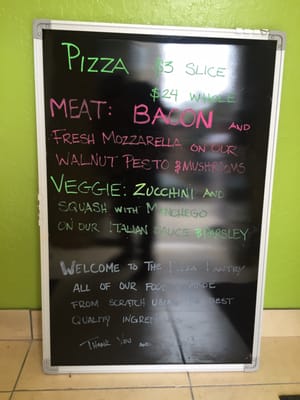 PIZZA $3 SLICE
$24 WHOLE
MEAT: BACON AND
FRESH MOZZARELLA ON OUR
WALNUT PESTO & MUSHROOMS
VEGGIE: ZUCCHINI AND
SQUASH WITH MANCHEGO
ON OUR ITALIAN SAUCE & PARSLEY
WELCOME TO THE PIZZA PANTRY
ALL OF OUR FOOD
FROM SCRATCH BEST
QUALITY
THANK YOU AND